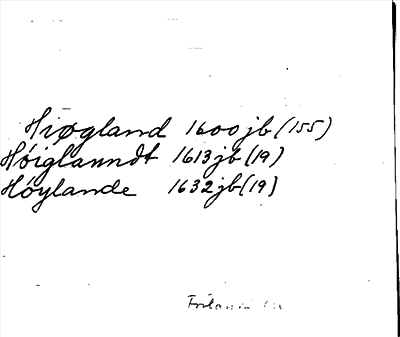 Hiøgland 1600 jb (155)
Høiglanndt 1613 jb (19)
Høylande 1632 jb (19)